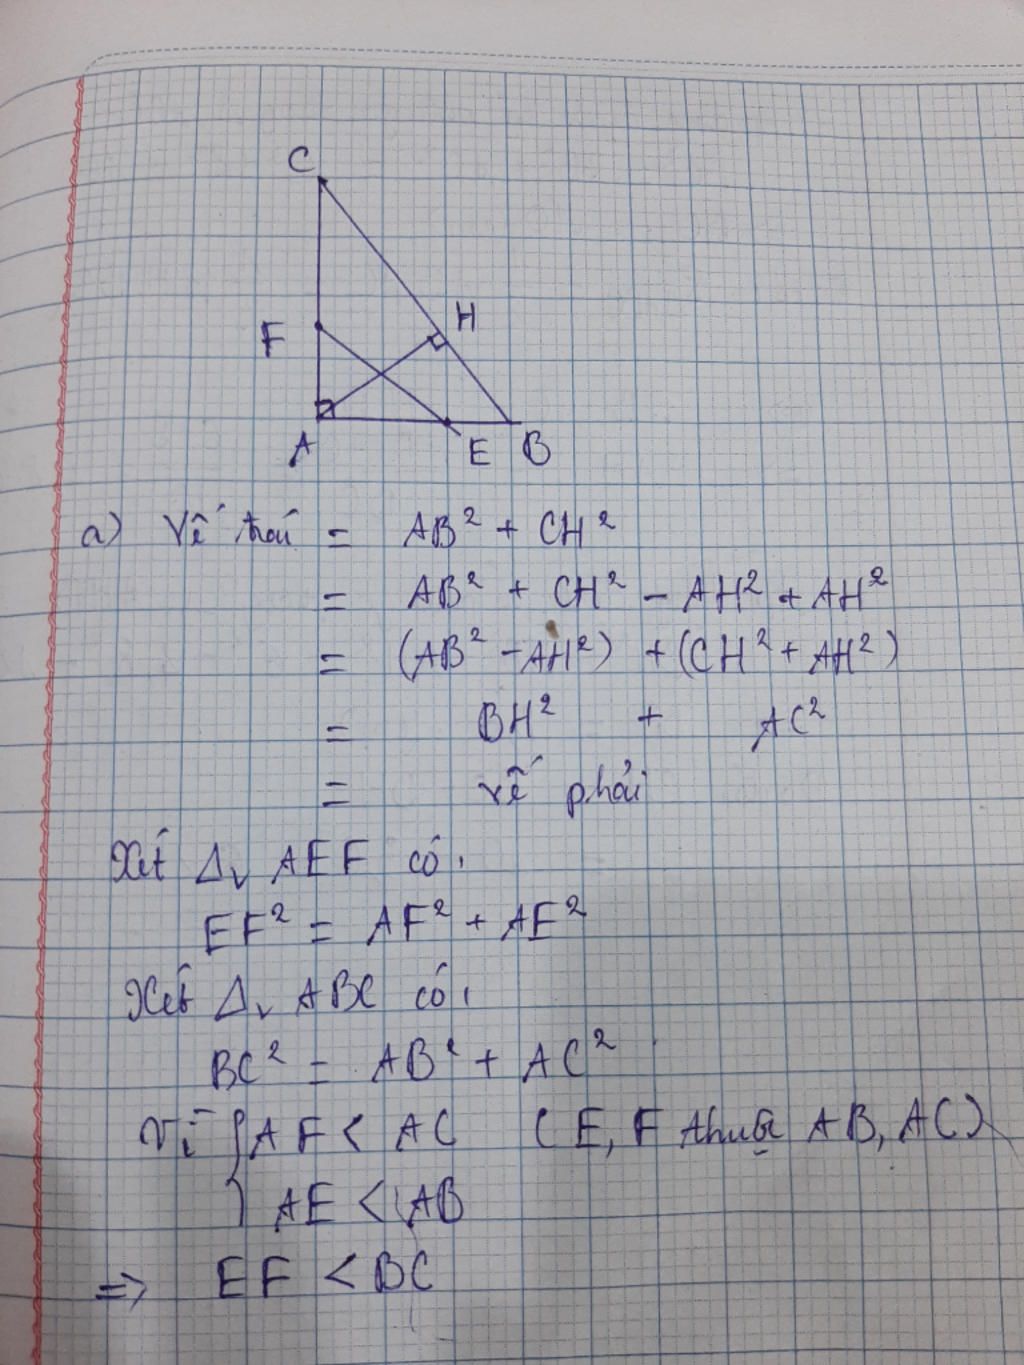 C
F
H
A
E
B
a) Vế trái = AB² + CH²
= AB² + CH² - AH² + AH²
= (AB² - AH²) + (CH² + AH²)
= BH² + AC²
= vế phải
Xét Δv AEF có:
EF² = AF² + AE²
Xét Δv ABC có:
BC² = AB² + AC²
Vì { AF < AC (E, F thuộc AB, AC)
AE < AB
=> EF < BC